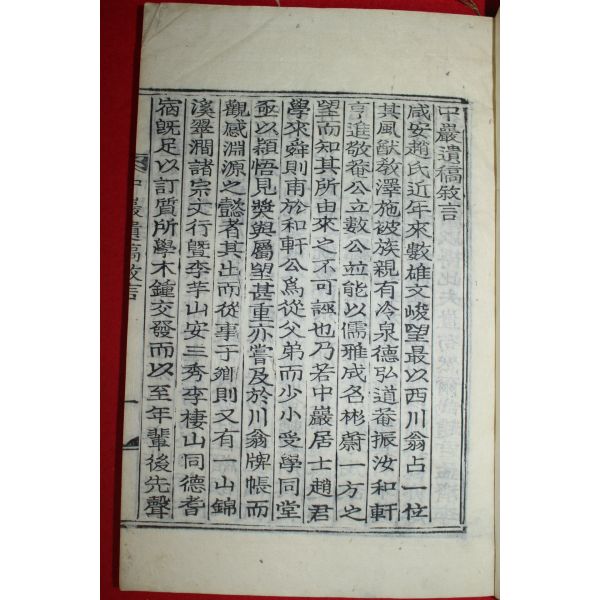 中巖遺稿敘言
咸安趙氏近年來數雄文峻望最以西川翁占一位
其風猷敎澤施被族親有冷泉德弘道菴振汝和軒
亨進敬菴公立數公並能以儒雅成名彬蔚一方之
望而知其所由來之不可誣也乃若中巖居士趙君
學來舜則甫於和軒公爲從父弟而少小受學同堂
亟以穎悟見奬與屬望甚重亦嘗及於川翁牌帳而
觀感淵源之懿者其出而從事于鄕則又有一山錦
溪翠澗諸宗丈行曁李芋山安三秀李棲山同德耆
宿旣足以訂質所學木鍾交發而以至年輩後先聲
中巖遺稿敘言
一